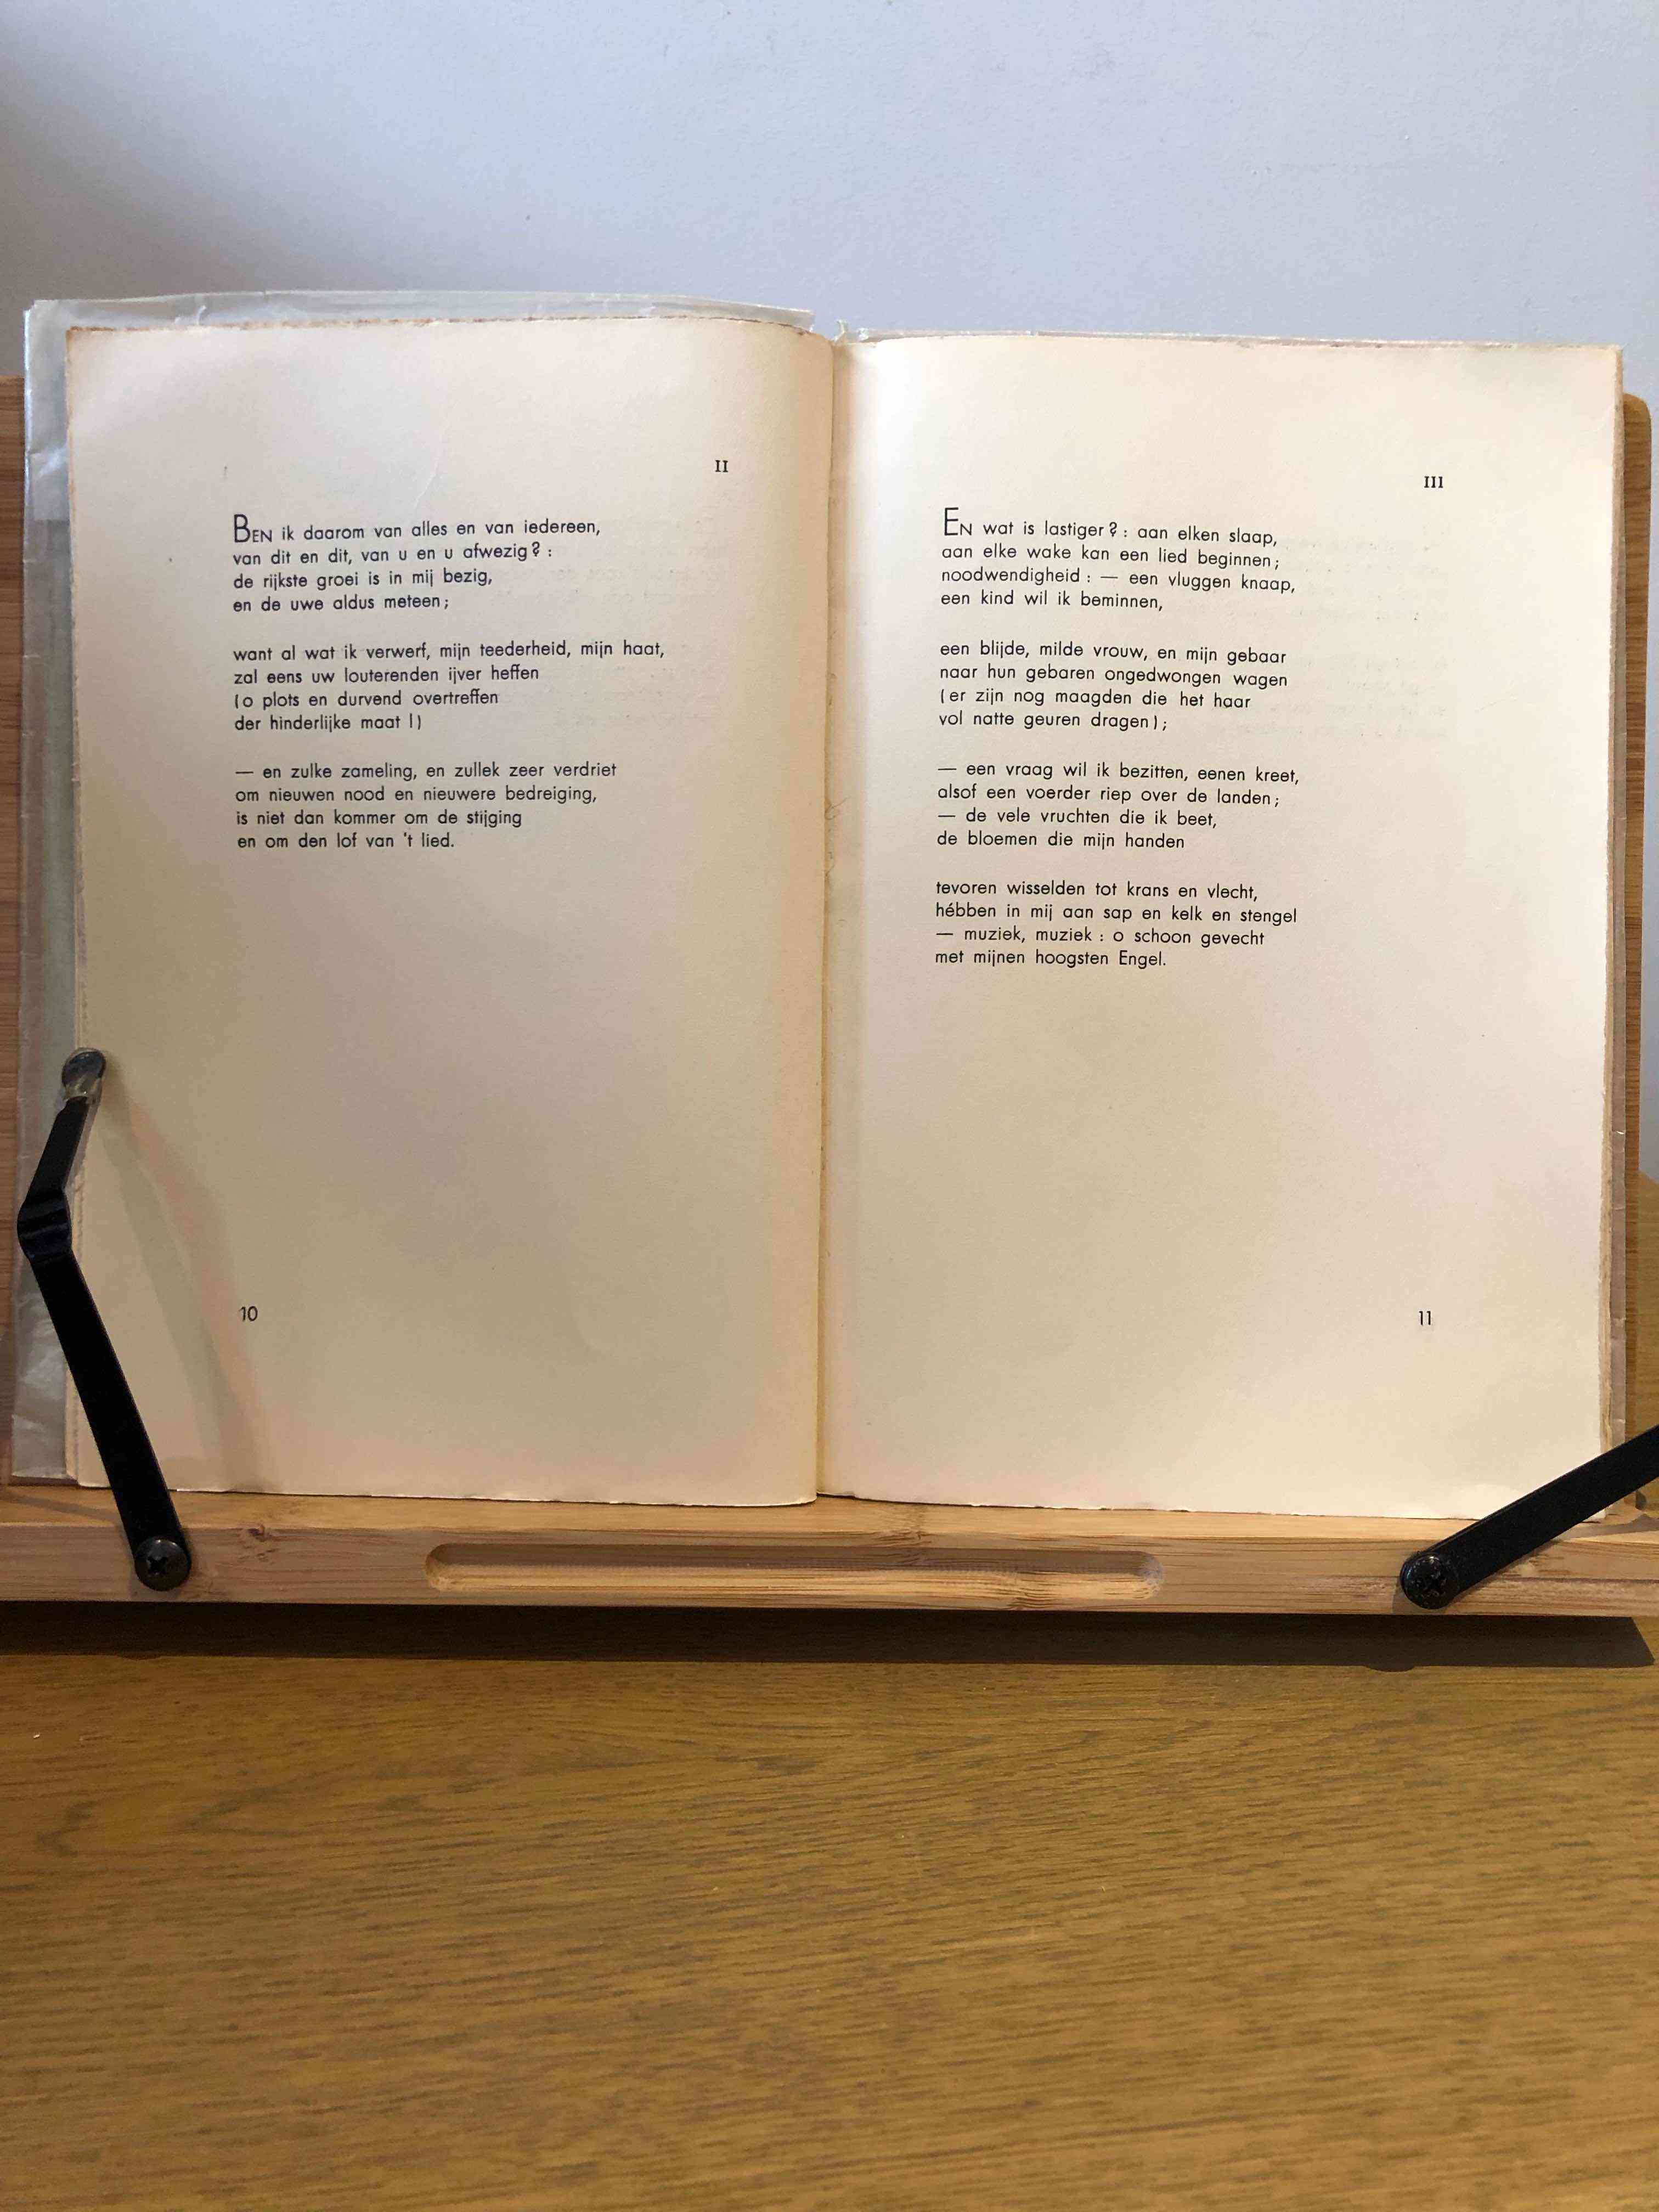 II
BEN ik daarom van alles en van iedereen,
van dit en dit, van u en u afwezig? :
de rijkste groei is in mij bezig,
en de uwe aldus meteen;
want al wat ik verwerf, mijn teederheid, mijn haat,
zal eens uw louterenden ijver heffen
(o plots en durvend overtreffen
der hinderlijke maat!)
— en zulke zameling, en zullek zeer verdriet
om nieuwen nood en nieuwere bedreiging,
is niet dan kommer om de stijging
en om den lof van 't lied.
10
III
EN wat is lastiger? : aan elken slaap,
aan elke wake kan een lied beginnen;
noodwendigheid : — een vluggen knaap,
een kind wil ik beminnen,
een blijde, milde vrouw, en mijn gebaar
naar hun gebaren ongedwongen wagen
(er zijn nog maagden die het haar
vol natte geuren dragen);
— een vraag wil ik bezitten, eenen kreet,
alsof een voerder riep over de landen;
— de vele vruchten die ik beet,
de bloemen die mijn handen
tevoren wisselden tot krans en vlecht,
hébben in mij aan sap en kelk en stengel
— muziek, muziek : o schoon gevecht
met mijnen hoogsten Engel.
11